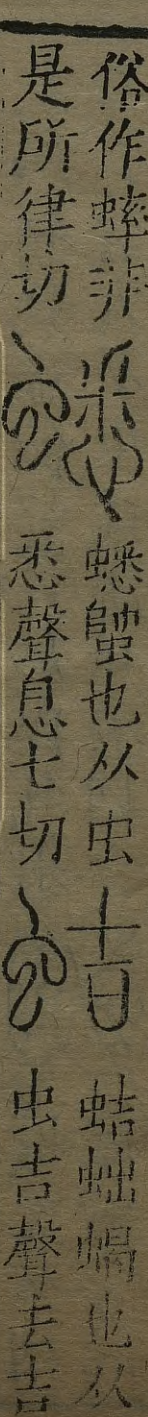 俗作蟀非
是所律切
蟋
蟋也从虫
悉聲息七切
蛣
蛣䖦蝎也从
虫吉聲去吉